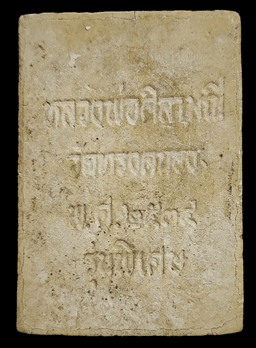 หลวงพ่อศิลามณี
วัดทรงคนอง
พ.ศ.๒๕๓๕
รุ่นพิเศษ